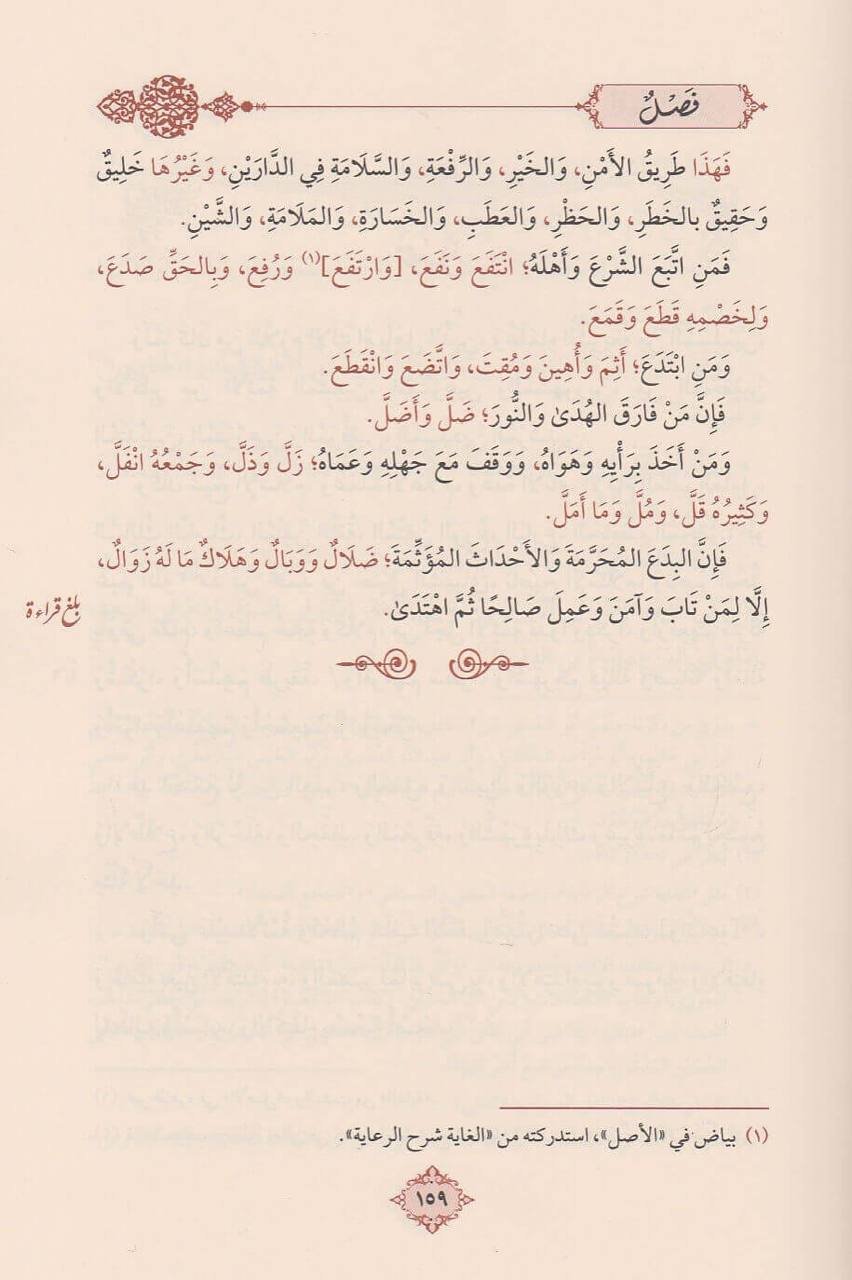 فَصْلٌ
فَهَذَا طَرِيقُ الأَمْنِ، وَالخَيْرِ، وَالرِّفْعَةِ، وَالسَّلَامَةِ فِي الدَّارَيْنِ، وَغَيْرُهَا خَلِيقٌ
وَحَقِيقٌ بالخَطَرِ، وَالحَظْرِ، وَالعَطَبِ، وَالخَسَارَةِ، وَالمَلَامَةِ، وَالشَّيْنِ.
فَمَنِ اتَّبَعَ الشَّرْعَ وَأَهْلَهُ؛ انْتَفَعَ وَنَفَعَ، [وَارْتَفَعَ](١) وَرُفِعَ، وَبِالحَقِّ صَدَعَ،
وَلِخَصْمِهِ قَطَعَ وَقَمَعَ.
وَمَنِ ابْتَدَعَ؛ أَثِمَ وَأُهِينَ وَمُقِتَ، وَاتَّضَعَ وَانْقَطَعَ.
فَإِنَّ مَنْ فَارَقَ الهُدَىٰ وَالنُّورَ؛ ضَلَّ وَأَضَلَّ.
وَمَنْ أَخَذَ بِرَأْيِهِ وَهَوَاهُ، وَوَقَفَ مَعَ جَهْلِهِ وَعَمَاهُ؛ زَلَّ وَذَلَّ، وَجَمْعُهُ انْفَلَّ،
وَكَثِيرُهُ قَلَّ، وَمُلَّ وَمَا أَمَلَّ.
فَإِنَّ البِدَعَ المُحَرَّمَةَ وَالأَحْدَاثَ المُؤَثِّمَةَ؛ ضَلَالٌ وَوَبَالٌ وَهَلَاكٌ مَا لَهُ زَوَالٌ،
إِلَّا لِمَنْ تَابَ وَآمَنَ وَعَمِلَ صَالِحًا ثُمَّ اهْتَدَىٰ.
بلغ قراءة
(١) بياض في «الأصل»، استدركته من «الغاية شرح الرعاية».
١٥٩